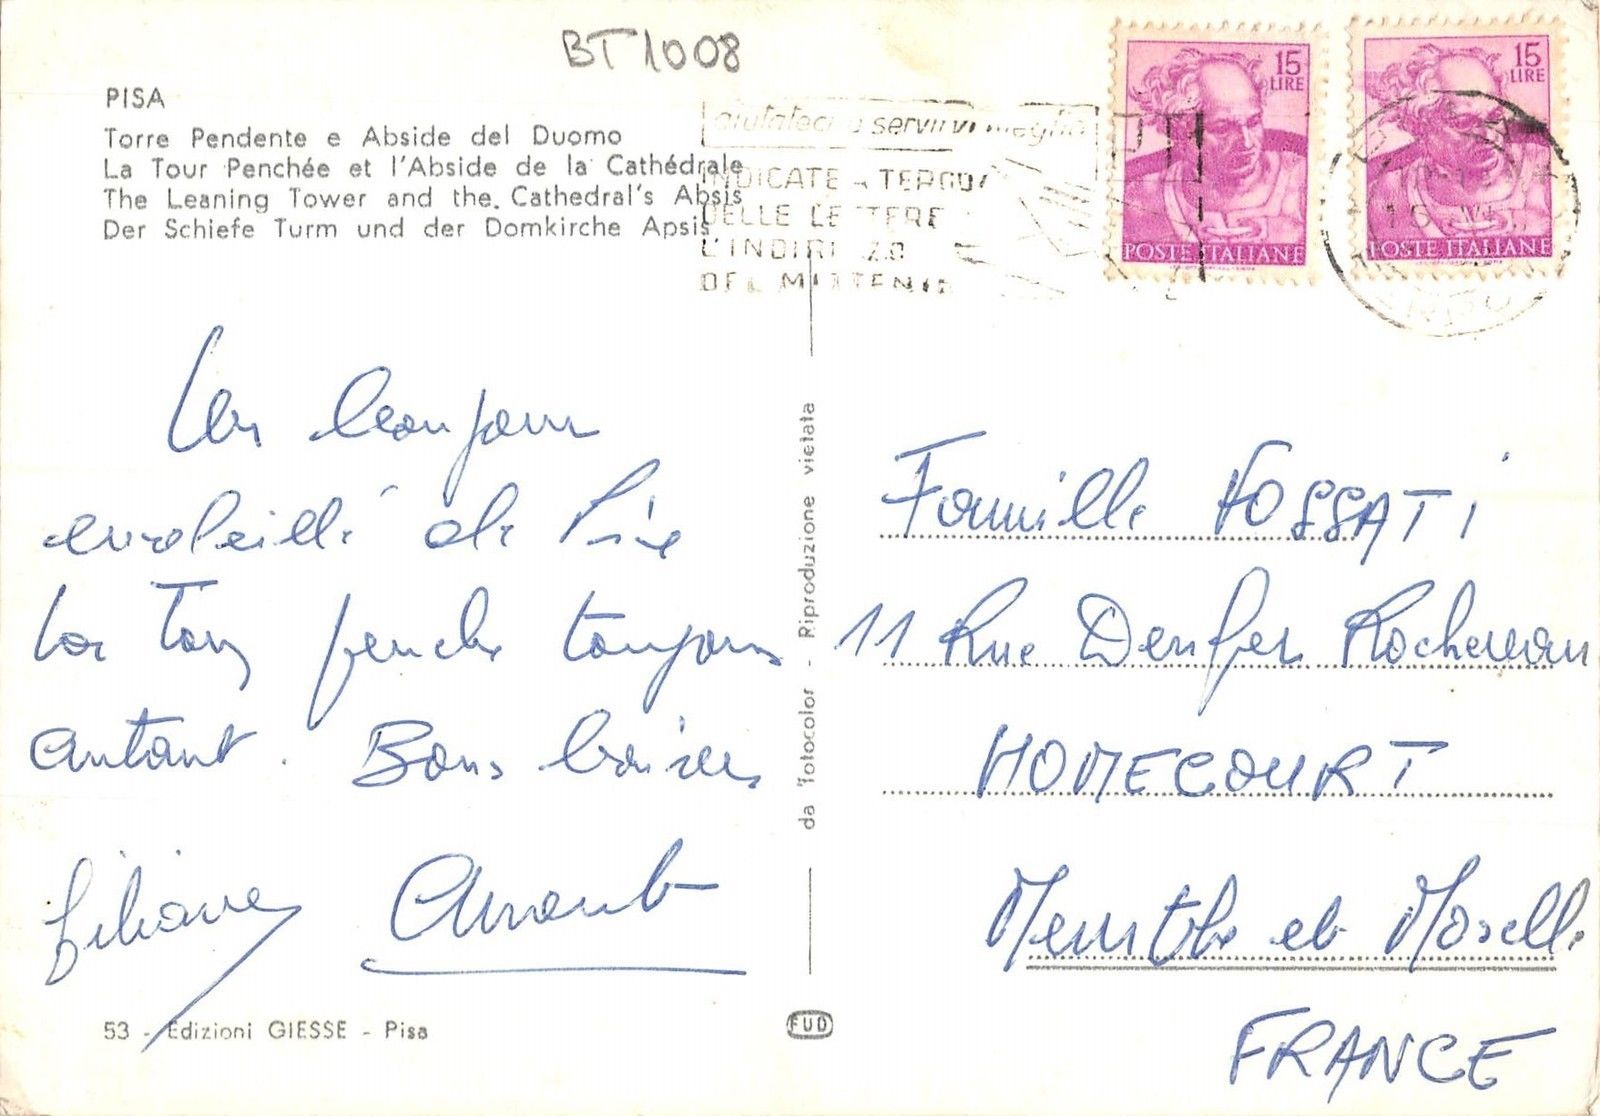 BT1008
PISA
Torre Pendente e Abside del Duomo
La Tour Penchée et l'Abside de la Cathédrale
The Leaning Tower and the Cathedral's Absis
Der Schiefe Turm und der Domkirche Apsis
aiutateci a servirvi meglio
INDICATE A TERGO
DELLE LETTERE
L'INDIRIZZO
DEL MITTENTE
15 LIRE
POSTE ITALIANE
15 LIRE
POSTE ITALIANE
Un bonjour
ensoleillé de Pise
La Tour penche toujours
autant. Bons baisers
Liliane Arnoult
53 - Edizioni GIESSE - Pisa
da fotocolor - Riproduzione vietata
FUD
Famille FOSSATI
11 Rue Denfer Rochereau
HOMECOURT
Meurthe et Moselle
FRANCE